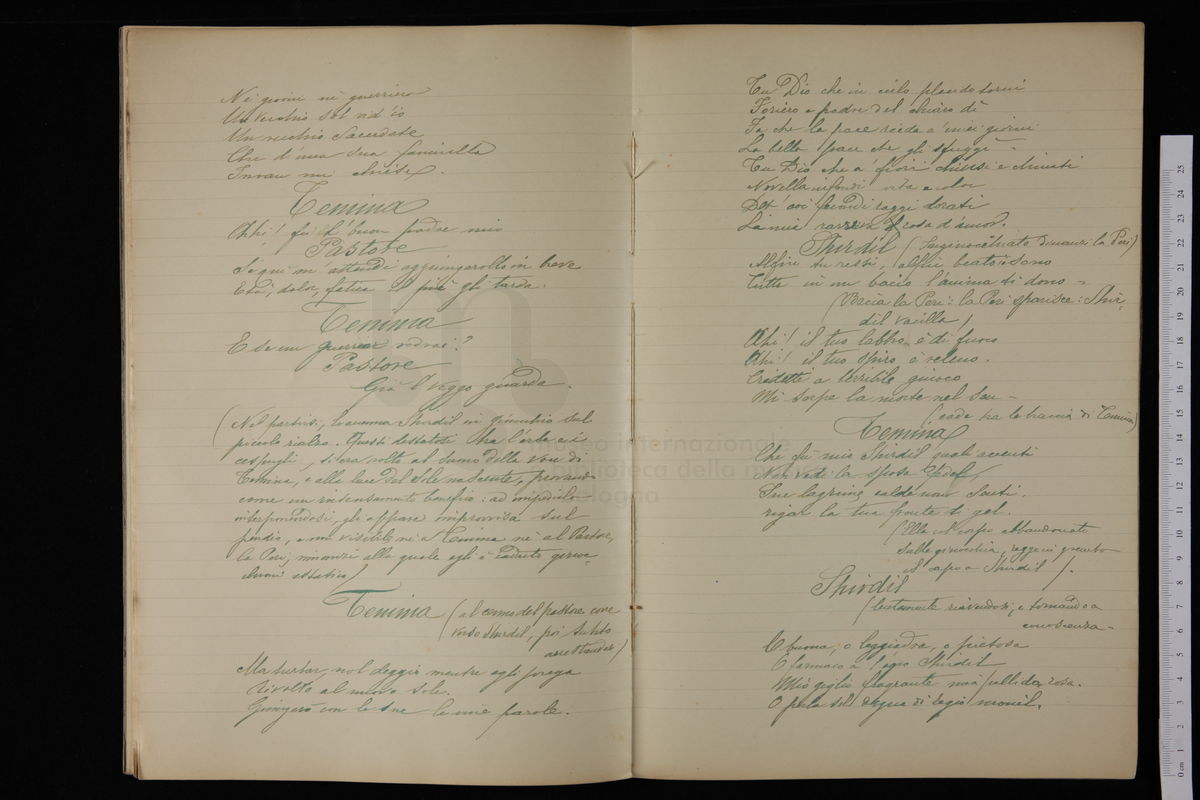 Nè giovin nè guerriero
Un vecchio sol vid'io
Un vecchio Sacerdote
Che d'una sua fanciulla
Invan mi chiese.
Temima
Ahi! fu il buon padre mio
Pastore
Se qui m'attendi aggiungerollo in breve
Età, dolor, fatica il piè gli tarda.
Temima
E se un guerrier vedrai?
Pastore
Già l'veggo guarda.
(Nel partirsi, Shirdil in ginocchio sul
piccolo rialzo. Questi destatosi tra l'erbe e i
cespugli, si era volto al suono della voce di
Temima, e alla luce del sole nascente, provando
come un intensamente benefico: ad impedirlo
interponendosi, gli appare improvvisa sul
pendio, e non visibile nè a Temima nè al Pastore,
la Peri, innanzi alla quale egli è caduto
estatico)
Temima (al cenno del pastore corre
verso Shirdil, poi subito
arrestandosi)
Ma turbar nol deggio mentre egli prega
Rivolto al nuovo sole.
Giungerò con le sue le mie parole.
Tu Dio che in cielo placido torni
Foriero e padre del chiaro dì
Fa che la pace rieda a' miei giorni
La bella pace che gli sfuggì -
Tu Dio che a' fiori chiusi e chinati
Novella infondi vita e color
Deh! coi fecondi raggi dorati
La mia ravviva rosa d'amor.
Shirdil (Inginocchiato dinanzi la Peri)
Alfin tu ressi, alfin beato sono
Tutta in un bacio l'anima ti dono -
(Bacia la Peri: la Peri sparisce: Shir-
dil vacilla)
Ahi! il tuo labbro è di fuoco
Ahi! il tuo spiro è veleno.
Credetti a terribile giuoco
Mi serpe la morte nel sen -
(cade tra le braccia di Temima)
Temima
Che fu mio Shirdil quali accenti
Non vedi la sposa fedel,
Sue lagrime calde non senti
rigar la tua fronte di gel.
(Ella col corpo abbandonato
sulle ginocchia, regge in grembo
il capo a Shirdil).
Shirdil
(lentamente riavendosi, e tornando a
conoscenza -
O buona, o leggiadra, o pietosa
O farmaco a l'egro Shirdil
Mio giglio fragrante mia pallida rosa.
O perla sol degna di regio monil.
25
24
23
22
21
20
19
18
17
16
15
14
13
12
11
10
9
8
7
6
5
4
3
2
1
0 cm
museo internazionale
e biblioteca della musica
di bologna